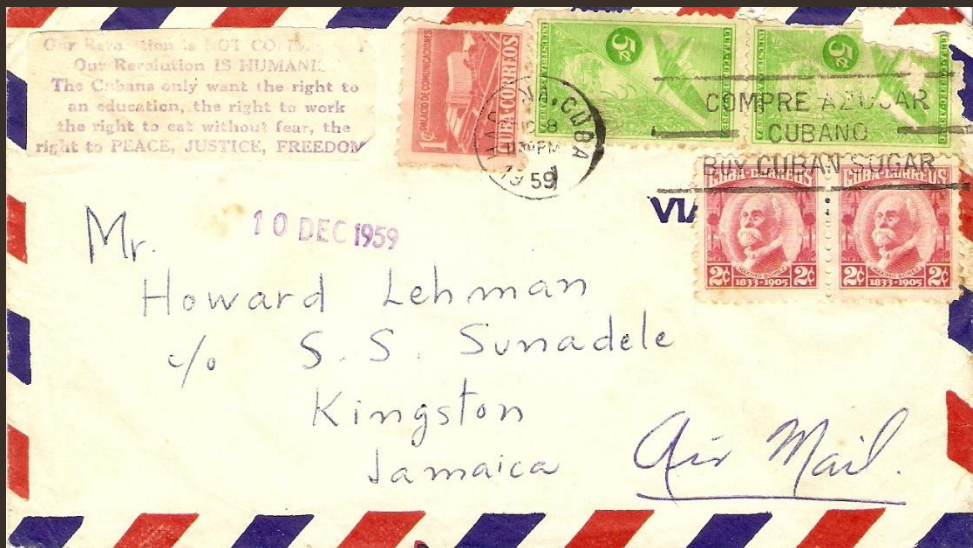 Our Revolution is NOT
Our Revolution IS
The Cubans only want the right to
an education, the right to work
the right to eat without fear, the
right to PEACE, JUSTICE, FREEDOM
1¢
PALACIO DE COMUNICACIONES
CUBA CORREOS
5¢
5¢
CUBA
8
PM
1959
COMPRE AZUCAR
CUBANO
BUY CUBAN SUGAR
VIA
CUBA CORREOS
MAXIMO GOMEZ
2¢ 2¢
1833-1905
CUBA CORREOS
MAXIMO GOMEZ
2¢ 2¢
1833-1905
10 DEC 1959
Mr.
Howard Lehman
c/o S. S. Sunadele
Kingston
Jamaica
Air Mail.